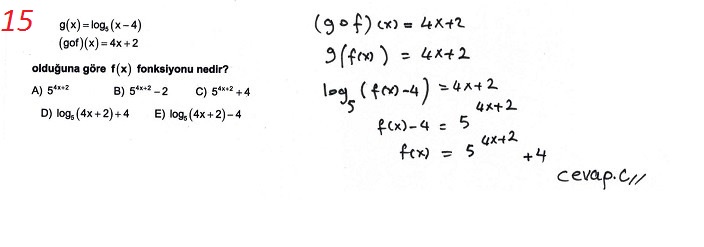 15
g(x) = log₅(x − 4)
(gof)(x) = 4x + 2
olduğuna göre f(x) fonksiyonu nedir?
A) 5⁴ˣ⁺² B) 5⁴ˣ⁺² − 2 C) 5⁴ˣ⁺² + 4
D) log₅(4x + 2) + 4 E) log₅(4x + 2) − 4
(gof)(x) = 4x+2
g(f(x)) = 4x+2
log₅(f(x)−4) = 4x+2
f(x)−4 = 5⁴ˣ⁺²
f(x) = 5⁴ˣ⁺² +4
cevap.C//